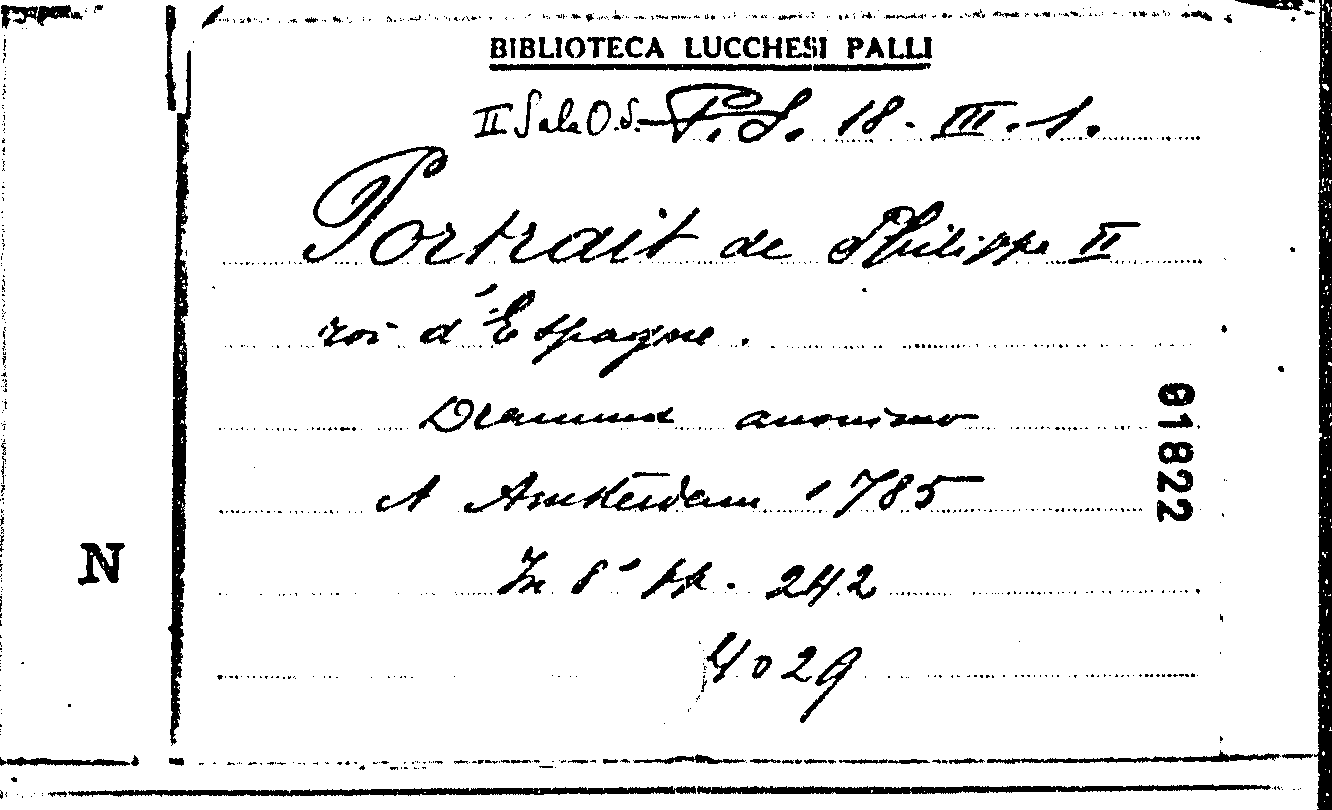 BIBLIOTECA LUCCHESI PALLI
II Sala O.S.-P.S. 18. III. 1.
Portrait de Philippe II
roi d'Espagne.
anonimo
A Amsterdam 1785
In 8° pp. 242
4029
01822
N